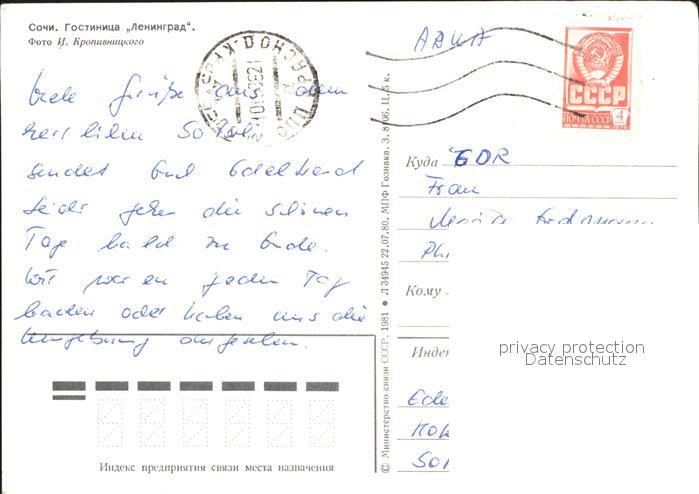 Сочи. Гостиница „Ленинград".
Фото И. Кропивницкого
Viele Grüße aus dem
herrlichen Sotschi
sendet Euch Edelhard
Leider gehen die schönen
Tage bald zu Ende.
Wir waren jeden Tag
baden oder haben uns die
Umgebung angesehen.
Индекс предприятия связи места назначения
© Министерство связи СССР. 1981 ● Л 34945 22.07.80. МПФ Гознака. З. 8106. Ц. 5 к.
АВИА
СССР
ПОЧТА СССР 4
Куда GDR
Frau
Кому
Индек
privacy protection
Datenschutz
Ede